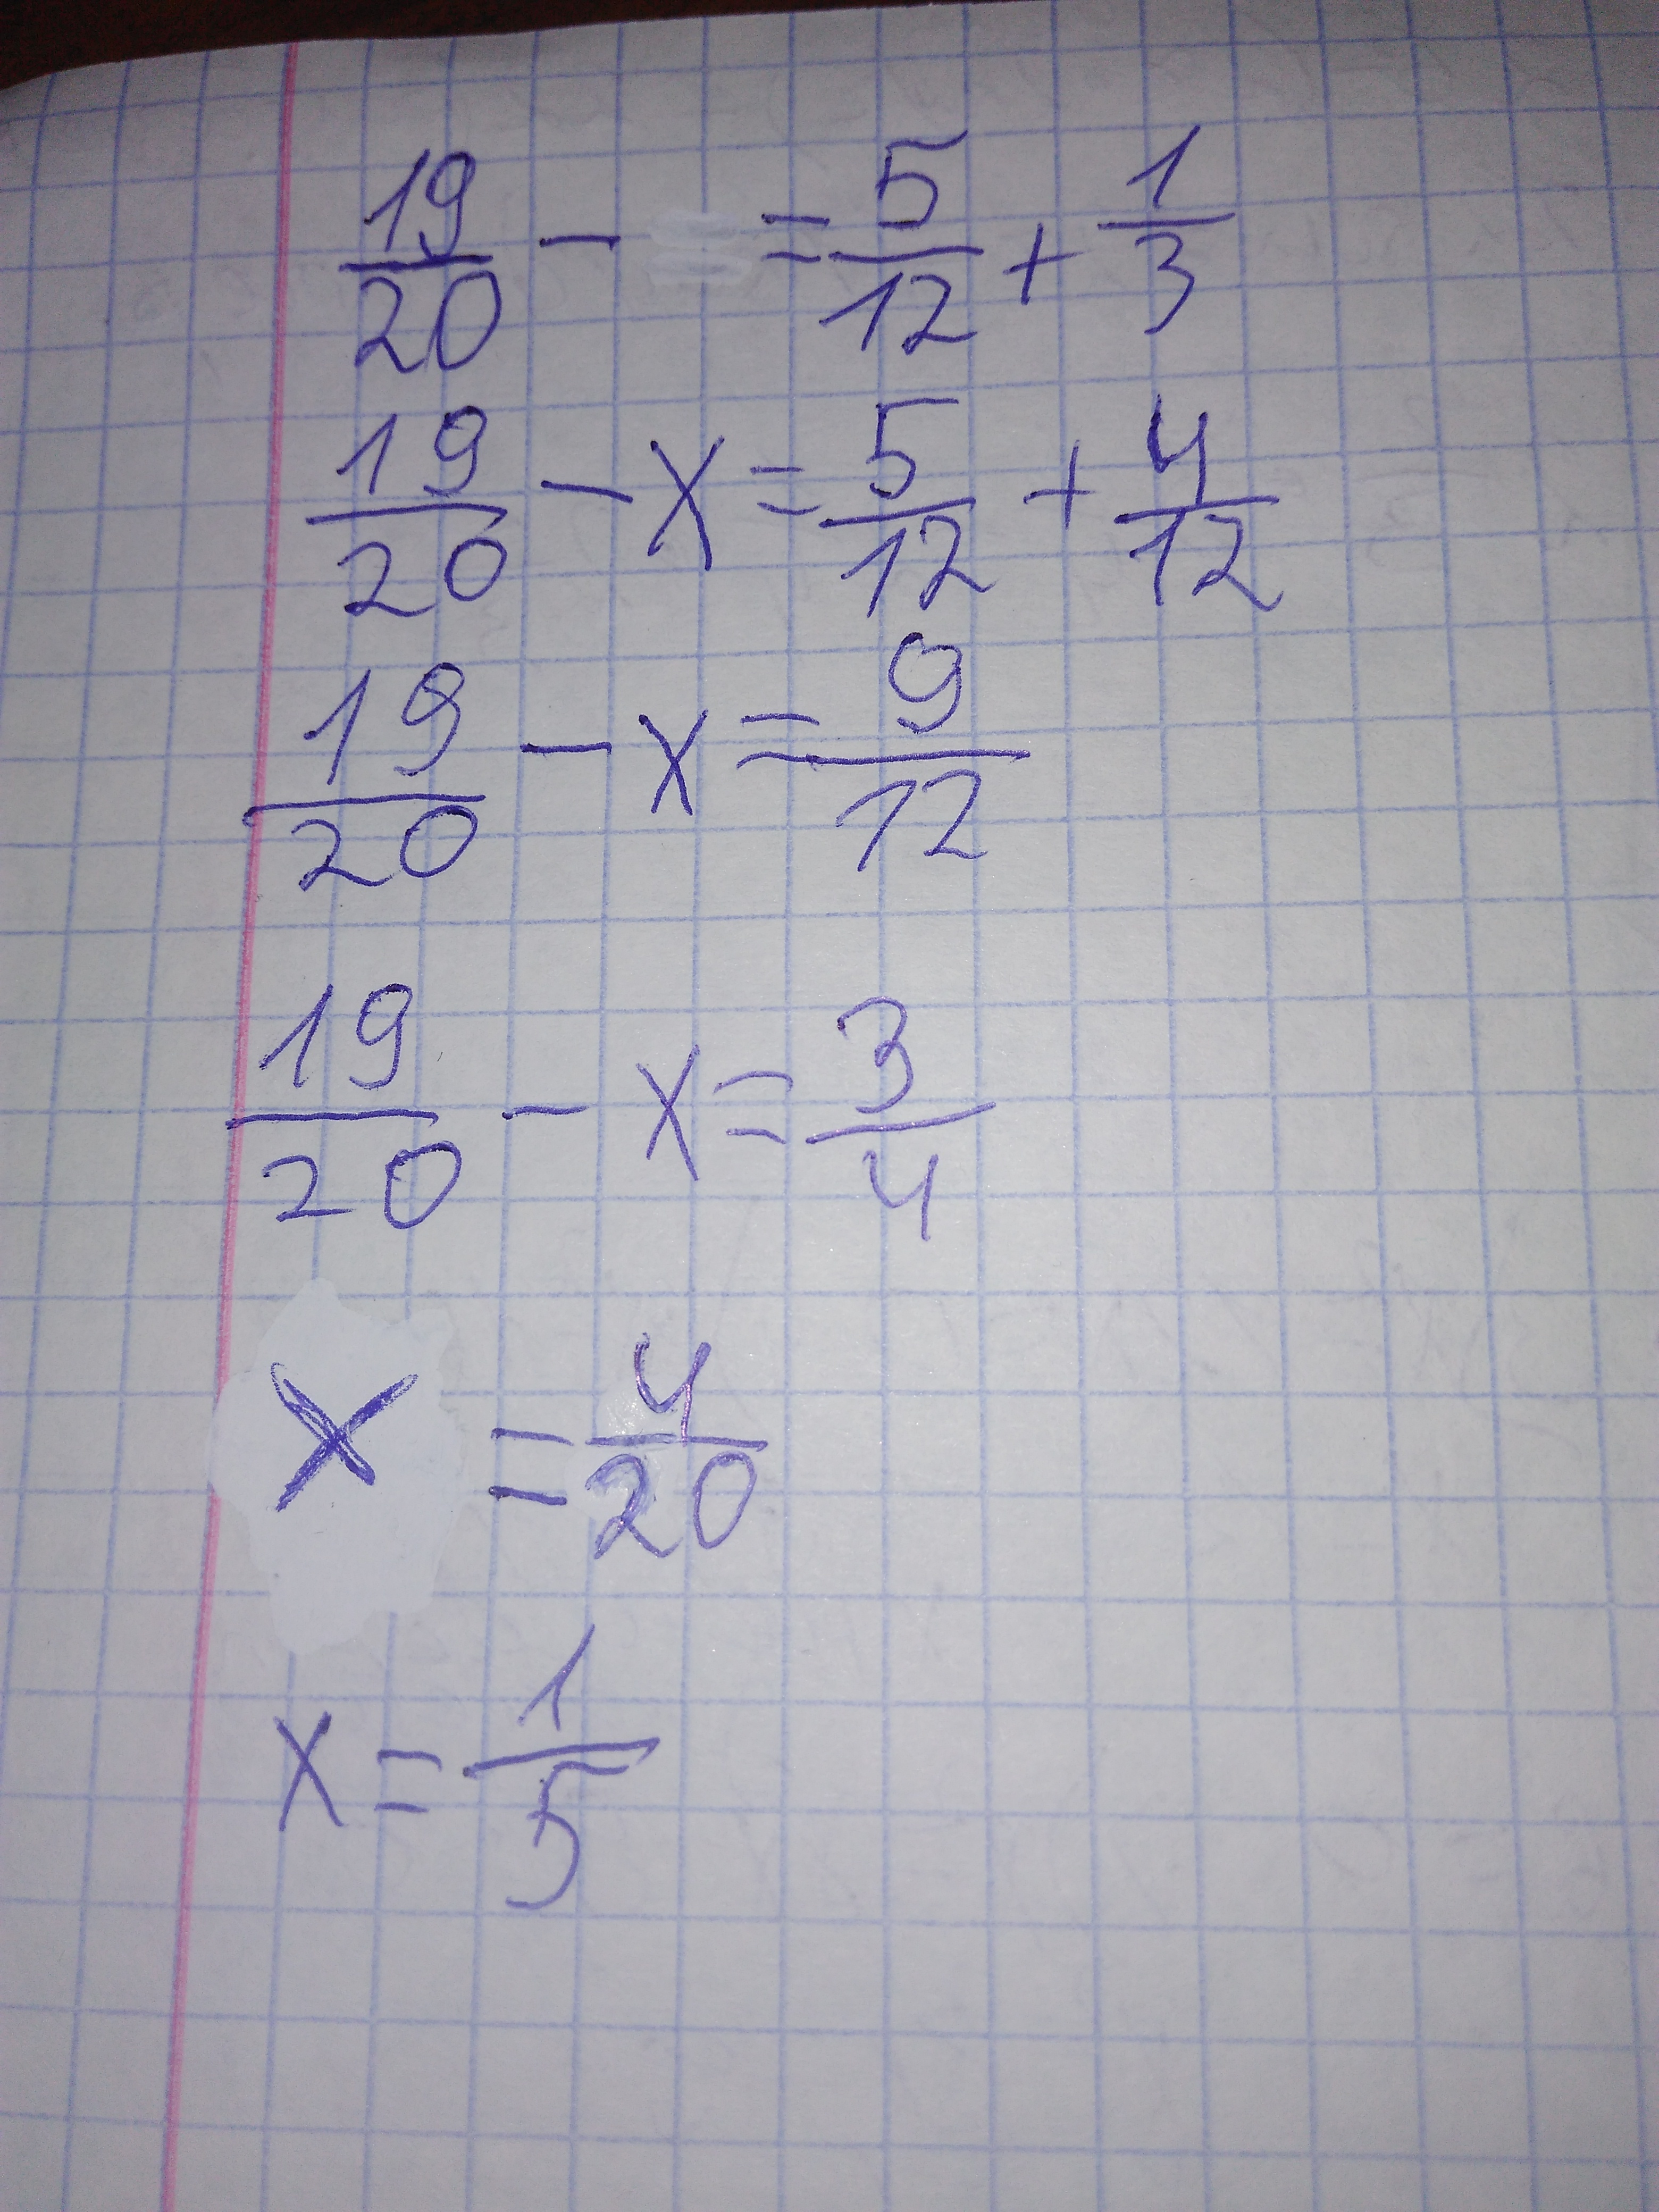 19/20 - = 5/12 + 1/3
19/20 - x = 5/12 + 4/12
19/20 - x = 9/12
19/20 - x = 3/4
x = 4/20
x = 1/5